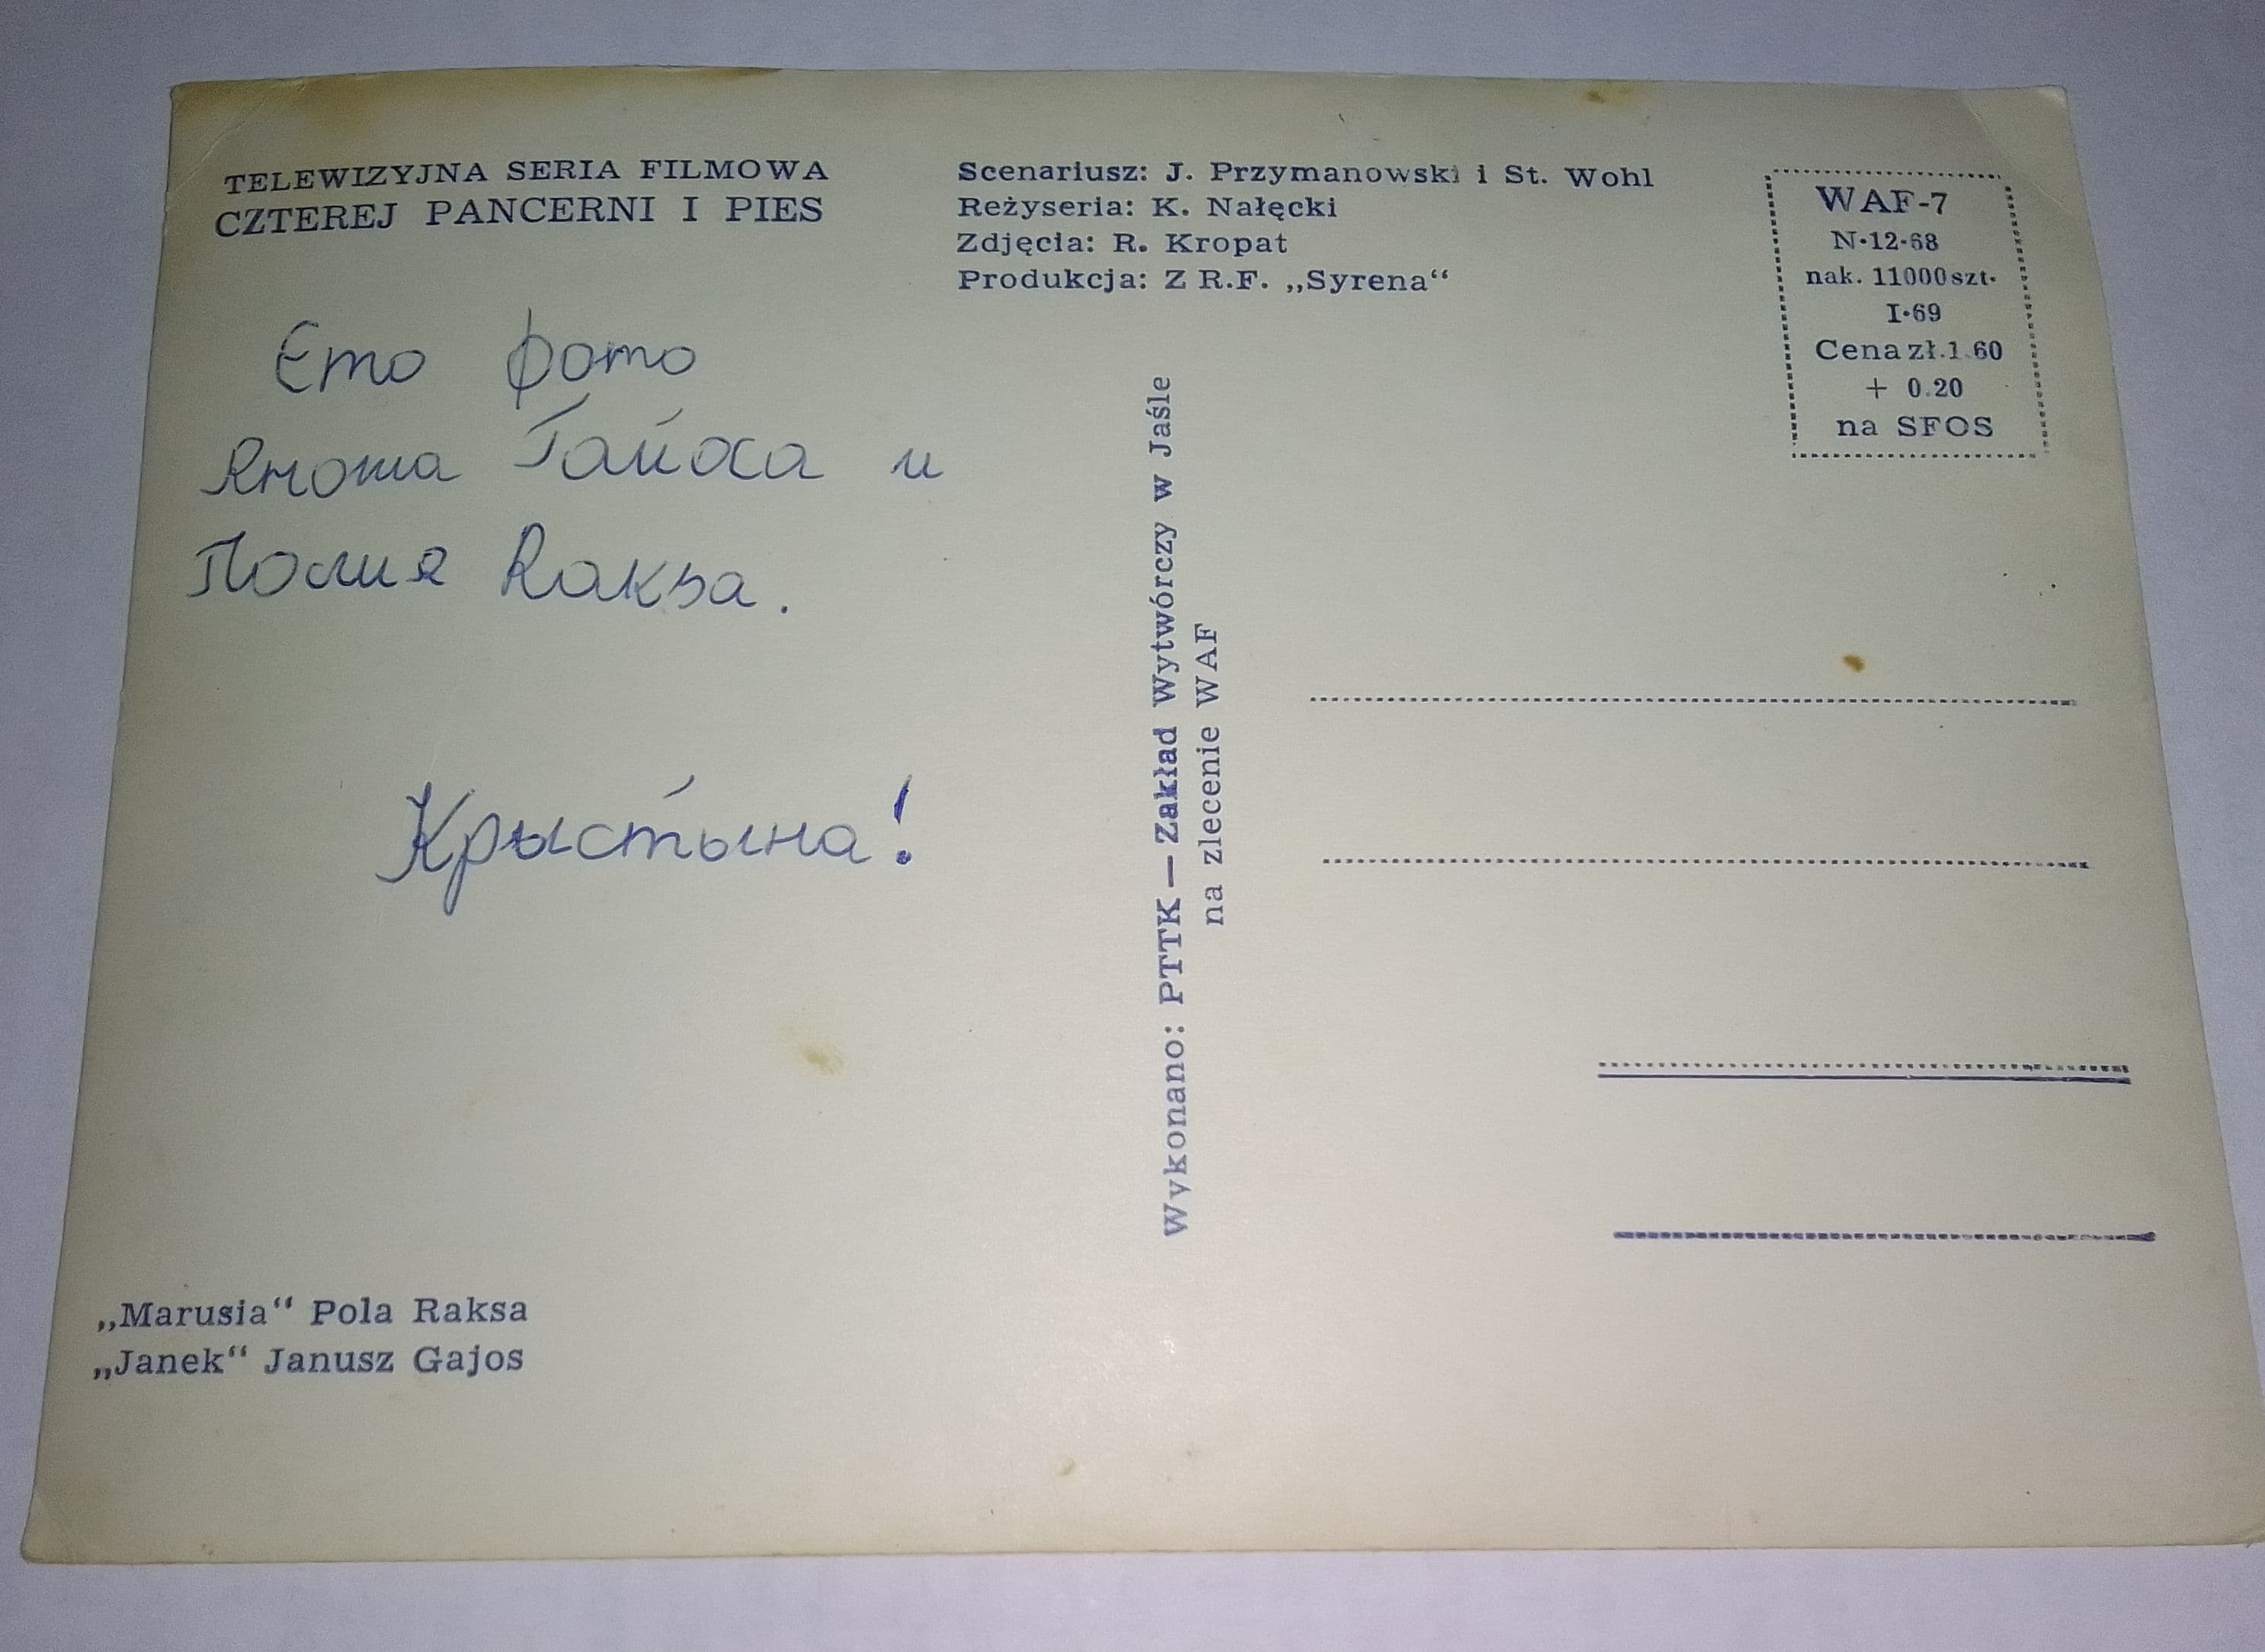 TELEWIZYJNA SERIA FILMOWA
CZTEREJ PANCERNI I PIES
Scenariusz: J. Przymanowski i St. Wohl
Reżyseria: K. Nałęcki
Zdjęcia: R. Kropat
Produkcja: Z R.F. „Syrena“
WAF-7
N·12·68
nak. 11000 szt·
I·69
Cena zł.1.60
+ 0.20
na SFOS
Ето фото
Яноша Гайоса и
Полия Rакsа.
Крыстына!
Wykonano: PTTK — Zakład Wytwórczy w Jaśle
na zlecenie WAF
„Marusia“ Pola Raksa
„Janek“ Janusz Gajos